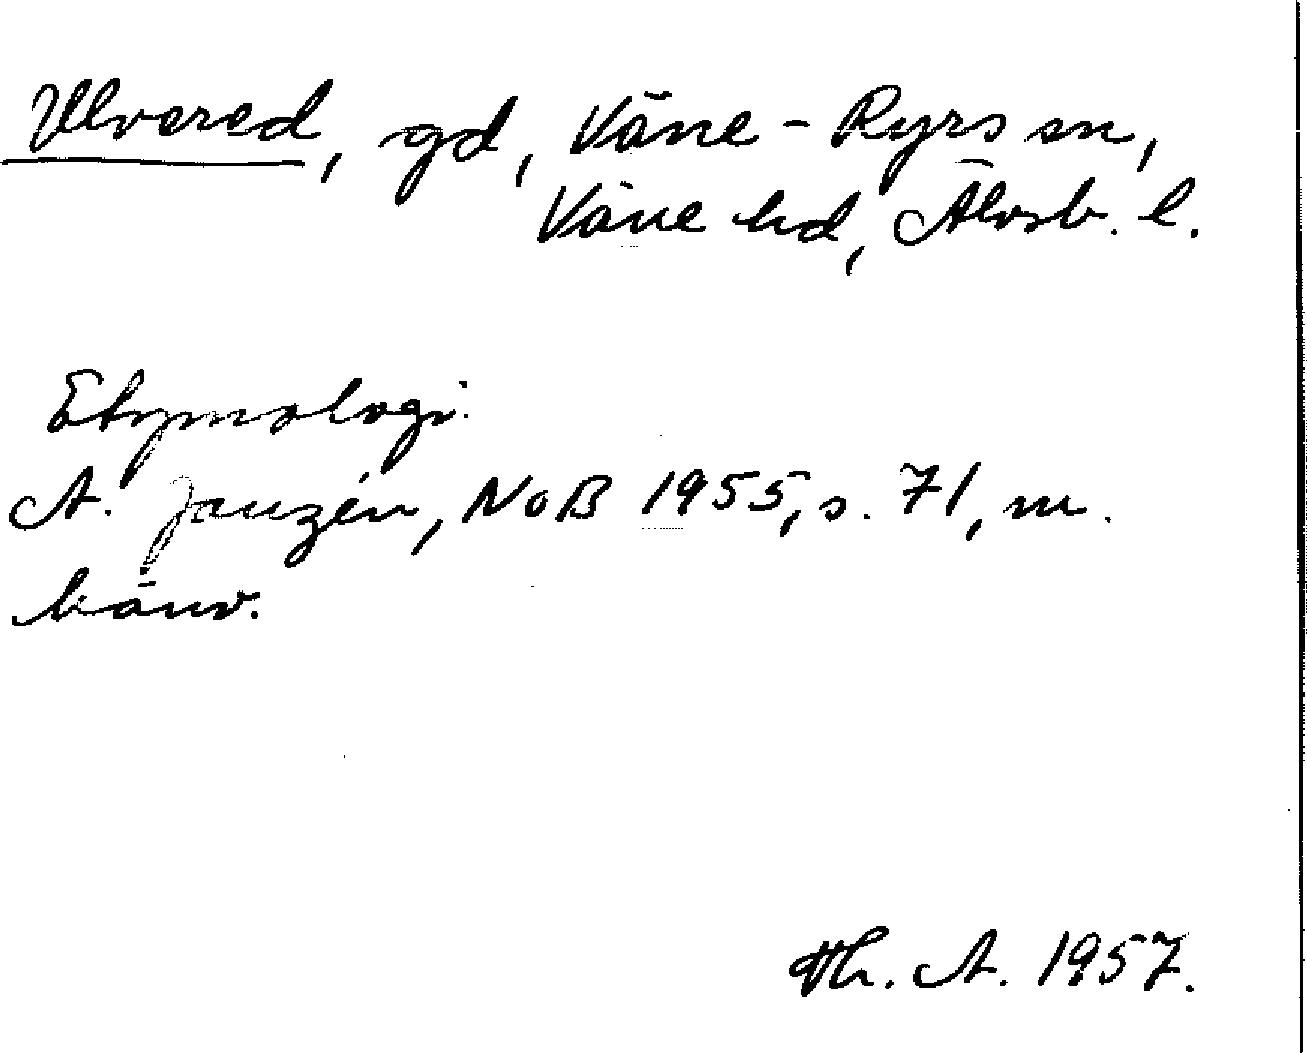 Ulvered, gd, Väne-Ryrs sn,
Väne hd, Älvsb. l.
Etymologi.
A. Janzén, NoB 1955, s. 71, m.
hänv.
Th. A. 1957.